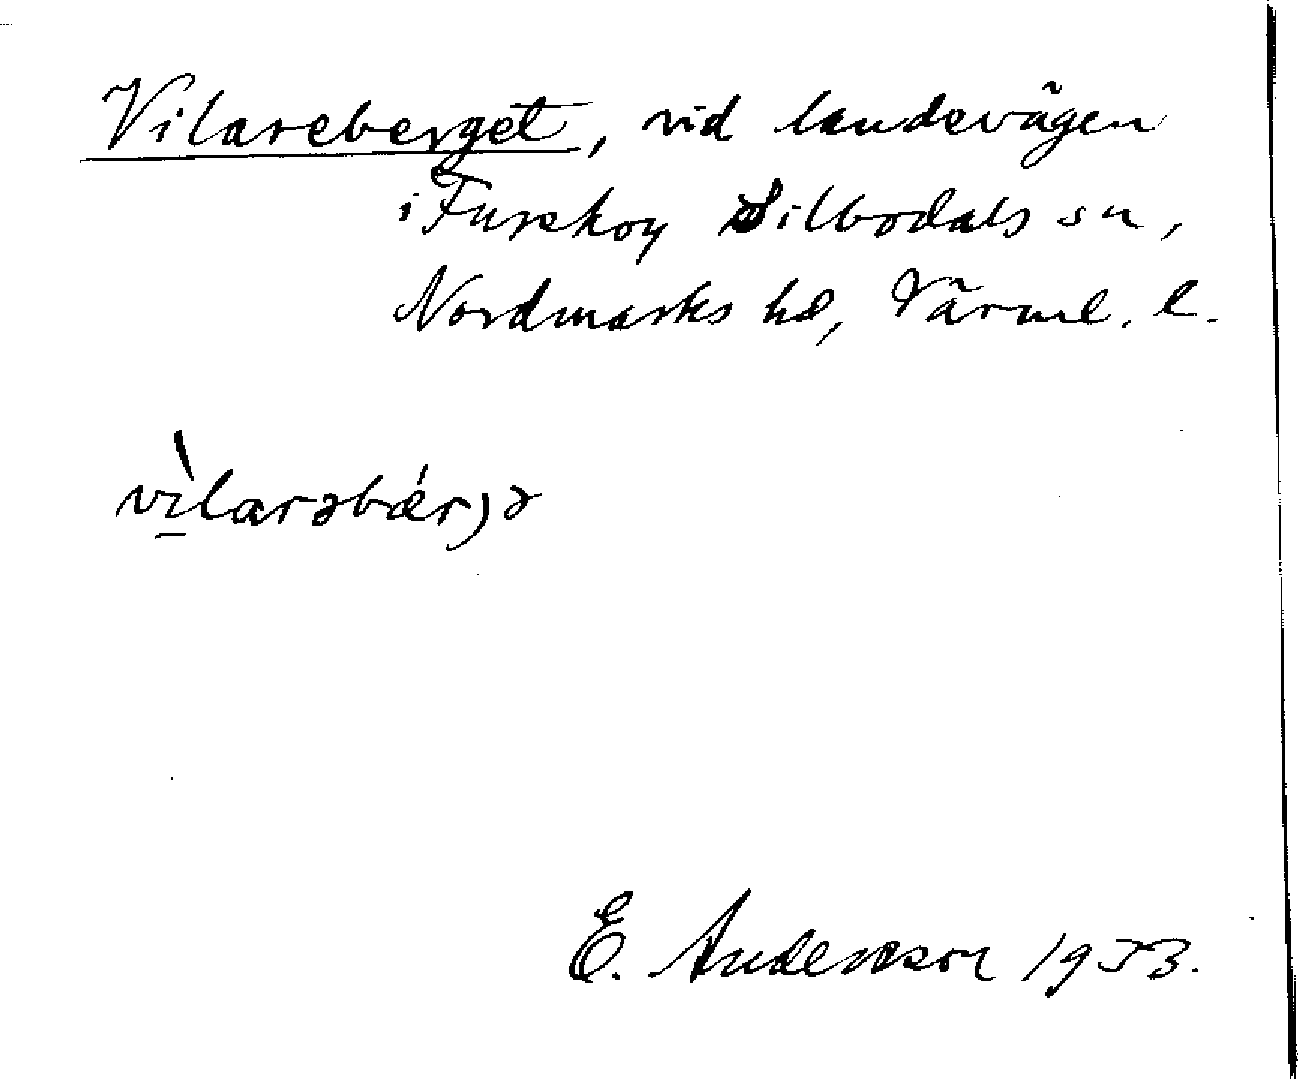 Vilareberget, vid landsvägen
i Furskog Silbodals sn,
Nordmarks hd, Värml. l.
vìlarəbǽrjə
E. Andersson 1933.